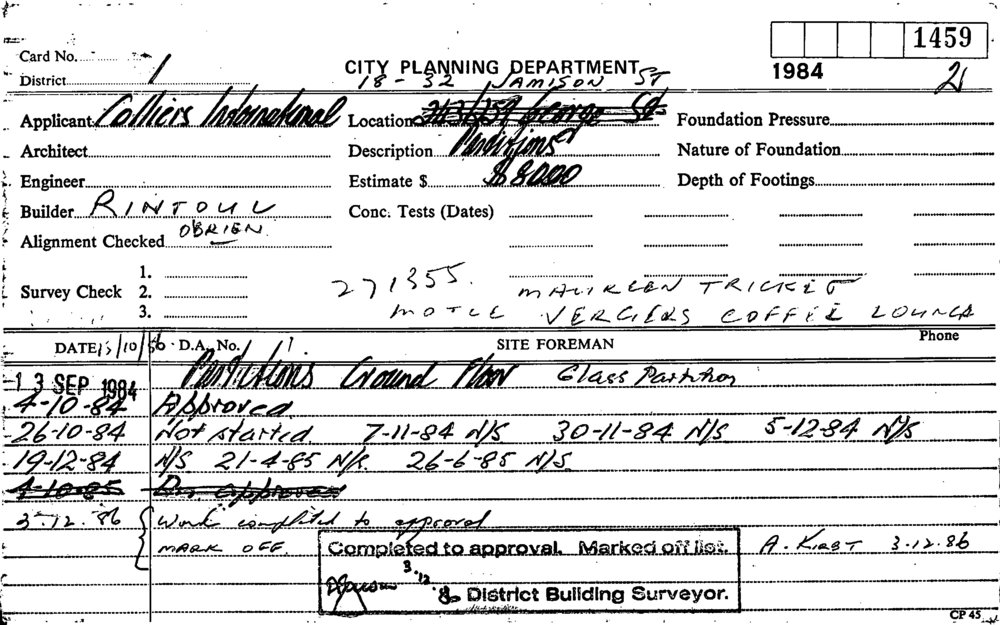 1459
Card No. 1984
CITY PLANNING DEPARTMENT
District 1 18 - 32 JAMISON ST 21
Applicant Colliers International Location 243/259 George St Foundation Pressure
Architect Description Partitions Nature of Foundation
Engineer Estimate $ $8000 Depth of Footings
Builder RINTOUL Conc. Tests (Dates)
Alignment Checked OBRIEN
1.
Survey Check 2. 271355. MAUREEN TRICKET
3. MOTEL VERGERS COFFEE LOUNGE
DATE 13/10/86 D.A. No. SITE FOREMAN Phone
13 SEP 1984 Partitions Ground Floor Glass Partition
4-10-84 Approved
26-10-84 Not started 7-11-84 N/S 30-11-84 N/S 5-12-84 N/S
19-12-84 N/S 21-4-85 N/S. 26-6-85 N/S
4-10-85 approved
3.12.86 Work completed to approval
MARK OFF. Completed to approval. Marked off list. A. KIRBT 3.12.86
3.12.86 District Building Surveyor.
CP 45